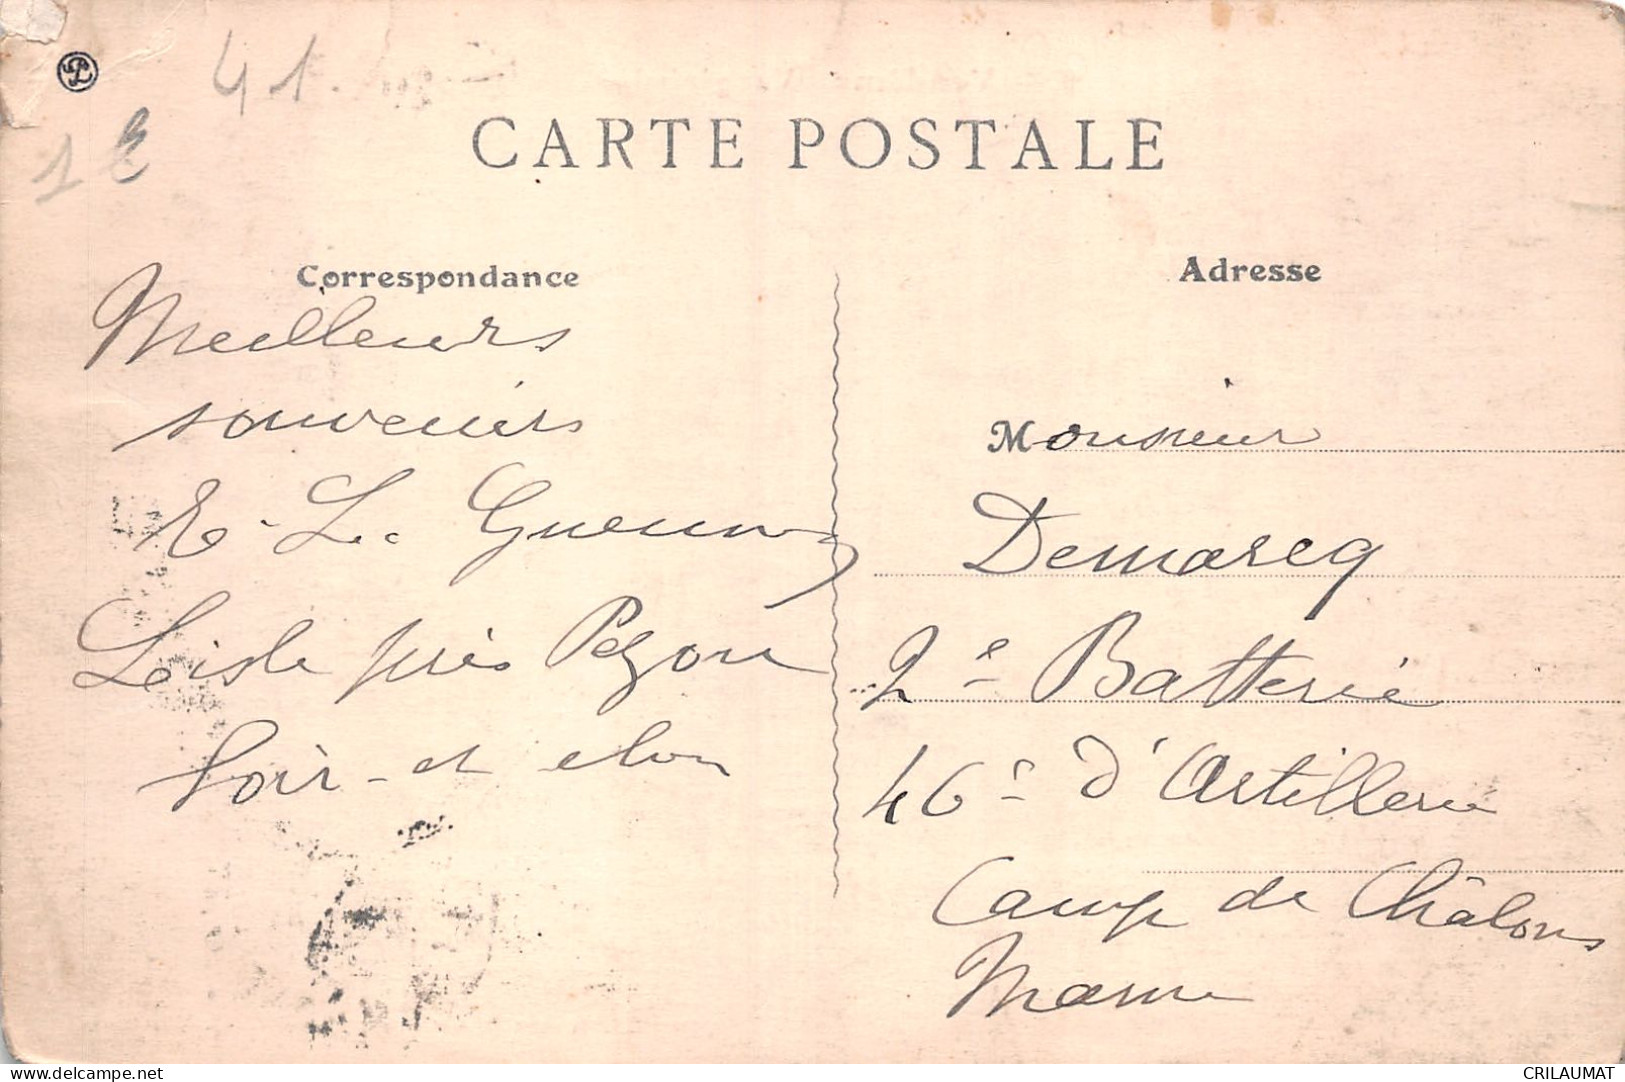 41.
1 E
CARTE POSTALE
Correspondance
Meilleurs
souvenirs
E. L. Gueun
Lisle près Pezou
Loir-et cher
Adresse
Monsieur
Demarcq
2e Batterie
46e d'Artillerie
Camp de Châlons
Marne
delcampe.net
CRILAUMAT